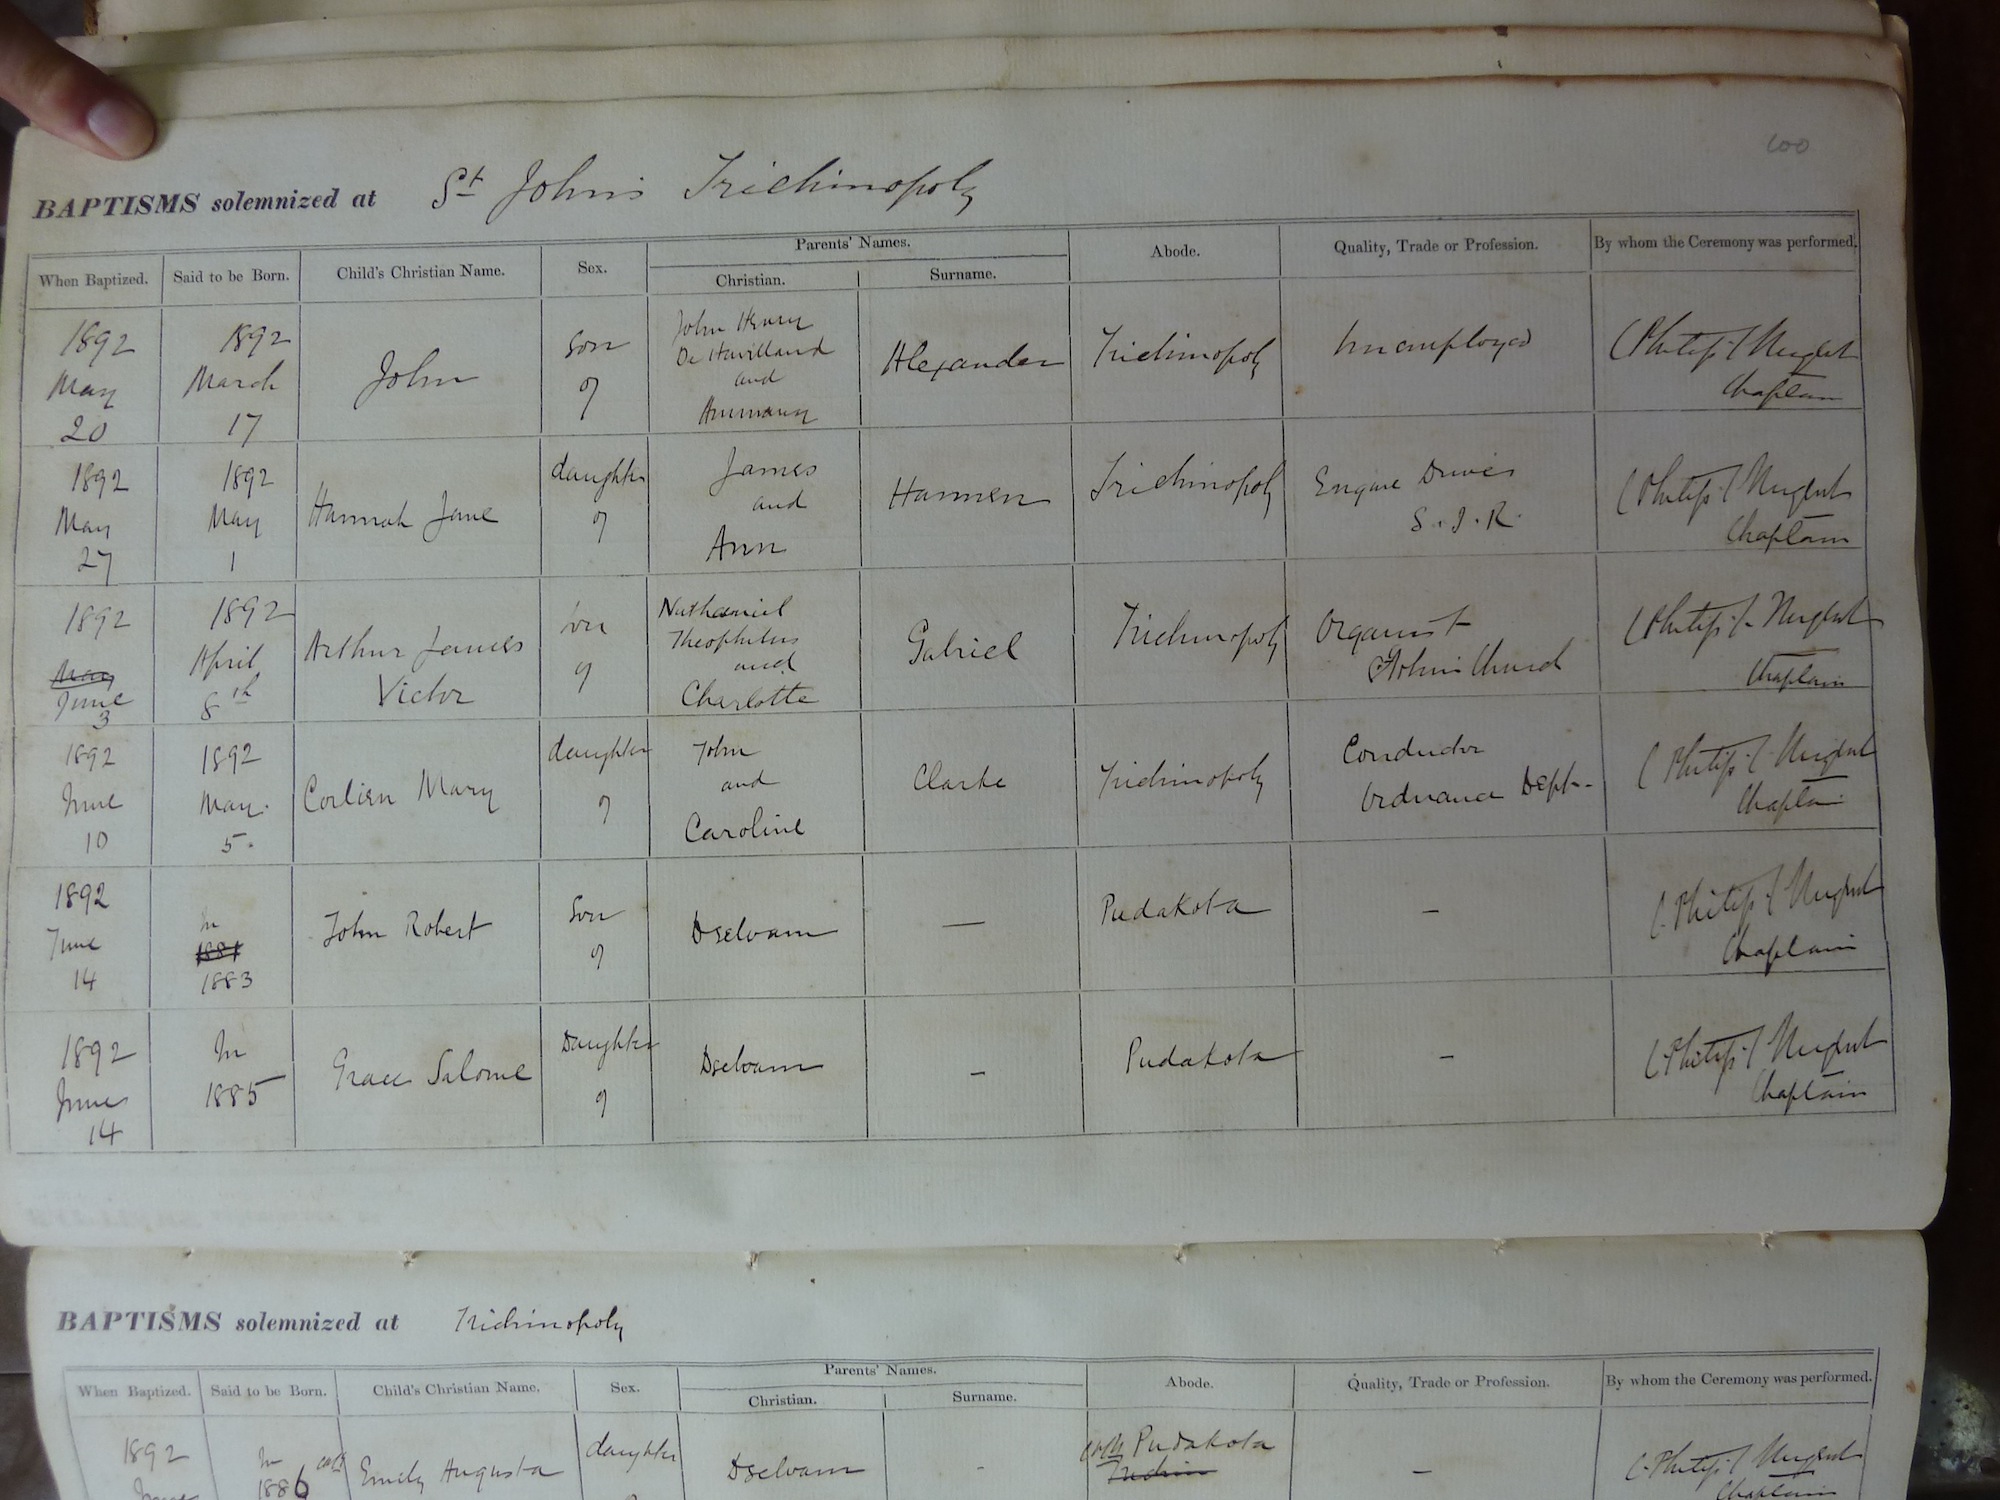 100
BAPTISMS solemnized at St John's Trichinopoly
When Baptized. Said to be Born. Child's Christian Name. Sex. Parents' Names. Abode. Quality, Trade or Profession. By whom the Ceremony was performed.
Christian. Surname.
1892 May 20
1892 March 17
John
Son of
John Henry
De Havilland
and
Ammany
Alexander
Trichinopoly
Unemployed
Chaplain
1892 May 27
1892 May 1
Hannah Jane
daughter of
James
and
Ann
Hannen
Trichinopoly
Engine Driver
S.I.R.
Chaplain
1892 May June 3
1892 April 8th
Arthur James
Victor
son of
Nathaniel
Theophilus
and
Charlotte
Gabriel
Trichinopoly
Organist
St John's Church
Chaplain
1892 June 10
1892 May. 5.
Mary
daughter of
John
and
Caroline
Clarke
Trichinopoly
Conductor
Ordnance Dept.
Chaplain
1892 June 14
In
1883
John Robert
Son of
Dselvam
—
Pudakota
–
Chaplain
1892 June 14
In
1885
Grace Salome
Daughter of
Dselvam
–
Pudakota
–
Chaplain
BAPTISMS solemnized at Trichinopoly
When Baptized. Said to be Born. Child's Christian Name. Sex. Parents' Names. Abode. Quality, Trade or Profession. By whom the Ceremony was performed.
Christian. Surname.
1892 June
In
1886
Emily Augusta
daughter
Dselvam
-
Pudakota
–
Chaplain